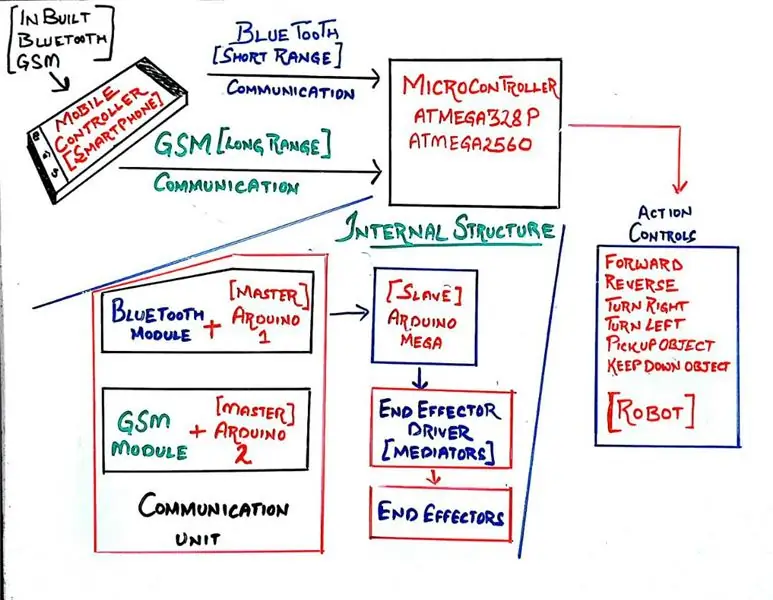 [IN BUILT
BLUETOOTH
GSM
MOBILE
CONTROLLER
[SMARTPHONE]
BLUETOOTH
[SHORT RANGE]
COMMUNICATION
GSM [LONG RANGE]
COMMUNICATION
MICROCONTROLLER
ATMEGA328P
ATMEGA2560
INTERNAL STRUCTURE
BLUETOOTH
MODULE + [MASTER]
ARDUINO
1
GSM
MODULE + [MASTER]
ARDUINO
2
COMMUNICATION
UNIT
[SLAVE]
ARDUINO
MEGA
END EFFECTOR
DRIVER
[MEDIATORS]
END EFFECTORS
ACTION
CONTROLS
FORWARD
REVERSE
TURN RIGHT
TURN LEFT
PICKUP OBJECT
KEEP DOWN OBJECT
[ROBOT]